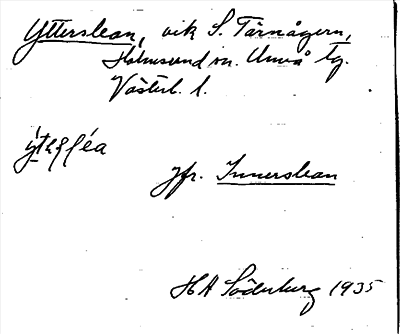 Ytterslean, vik S. Tärnågern,
Holmsund sn. Umeå tg.
Västerb. l.
jfr. Innerslean
HA Söderberg 1935